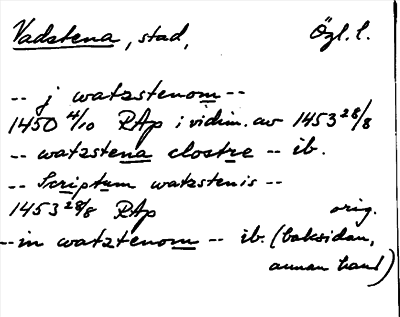 Vadstena, stad, Ögl. l.
-- j watzstenom --
1450 4/10 RAp i vidim. av 1453 28/8
-- watzstena clostre -- ib.
-- Scriptum watzstenis --
1453 28/8 RAp orig.
-- in watztenom -- ib. (baksidan,
annan hand)